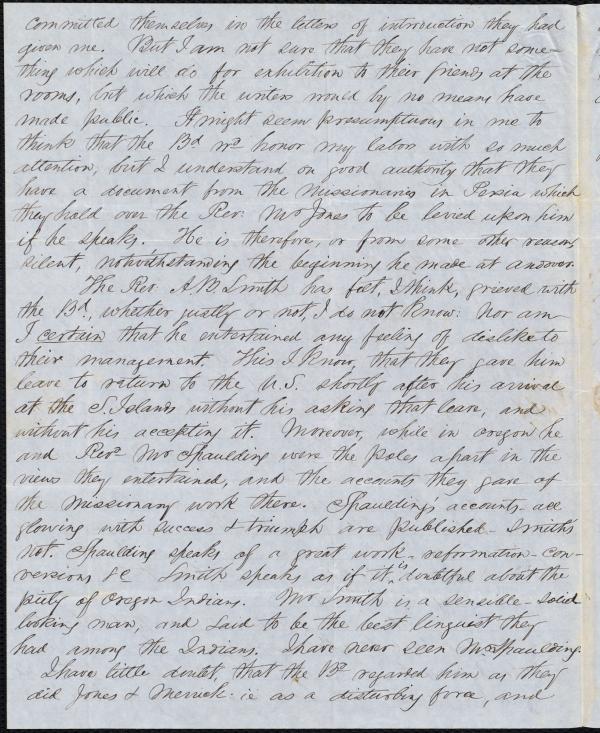 committed themselves in the letters of introduction they had
given me. But I am not sure that they have not some-
thing which will do for exhibition to their friends at the
rooms, but which the writers would by no means have
made public. It might seem presumptuous in me to
think that the Bd wd honor my labor with so much
attention, but I understand on good authority that they
have a document from the missionaries in Persia which
they hold over the Rev: Mr Jones to be levied upon him
if he speaks. He is therefore, or from some other reason
silent, notwithstanding the beginning he made at andover.
The Rev. A. B. Smith has felt, I think, grieved with
the Bd, whether justly or not, I do not know: Nor am
I certain that he entertained any feeling of dislike to
their management. This I know, that they gave him
leave to return to the U.S. shortly after his arrival
at the S. Islands without his asking that leave, and
without his accepting it. Moreover, while in oregon he
and Revd Mr Spaulding were the poles apart in the
views they entertained, and the accounts they gave of
the missionary work there. Spaulding's accounts all
glowing with success & triumph are published - Smith's
not. Spaulding speaks of a great work - reformation - con-
versions &c Smith speaks as if it is doubtful about the
piety of oregon Indians. Mr Smith is a sensible - solid
looking man, and said to be the best linguist they
had among the Indians. I have never seen Mr Spaulding.
I have little doubt, that the Bd regarded him as they
did Jones & Merrick: ie as a disturbing force, and